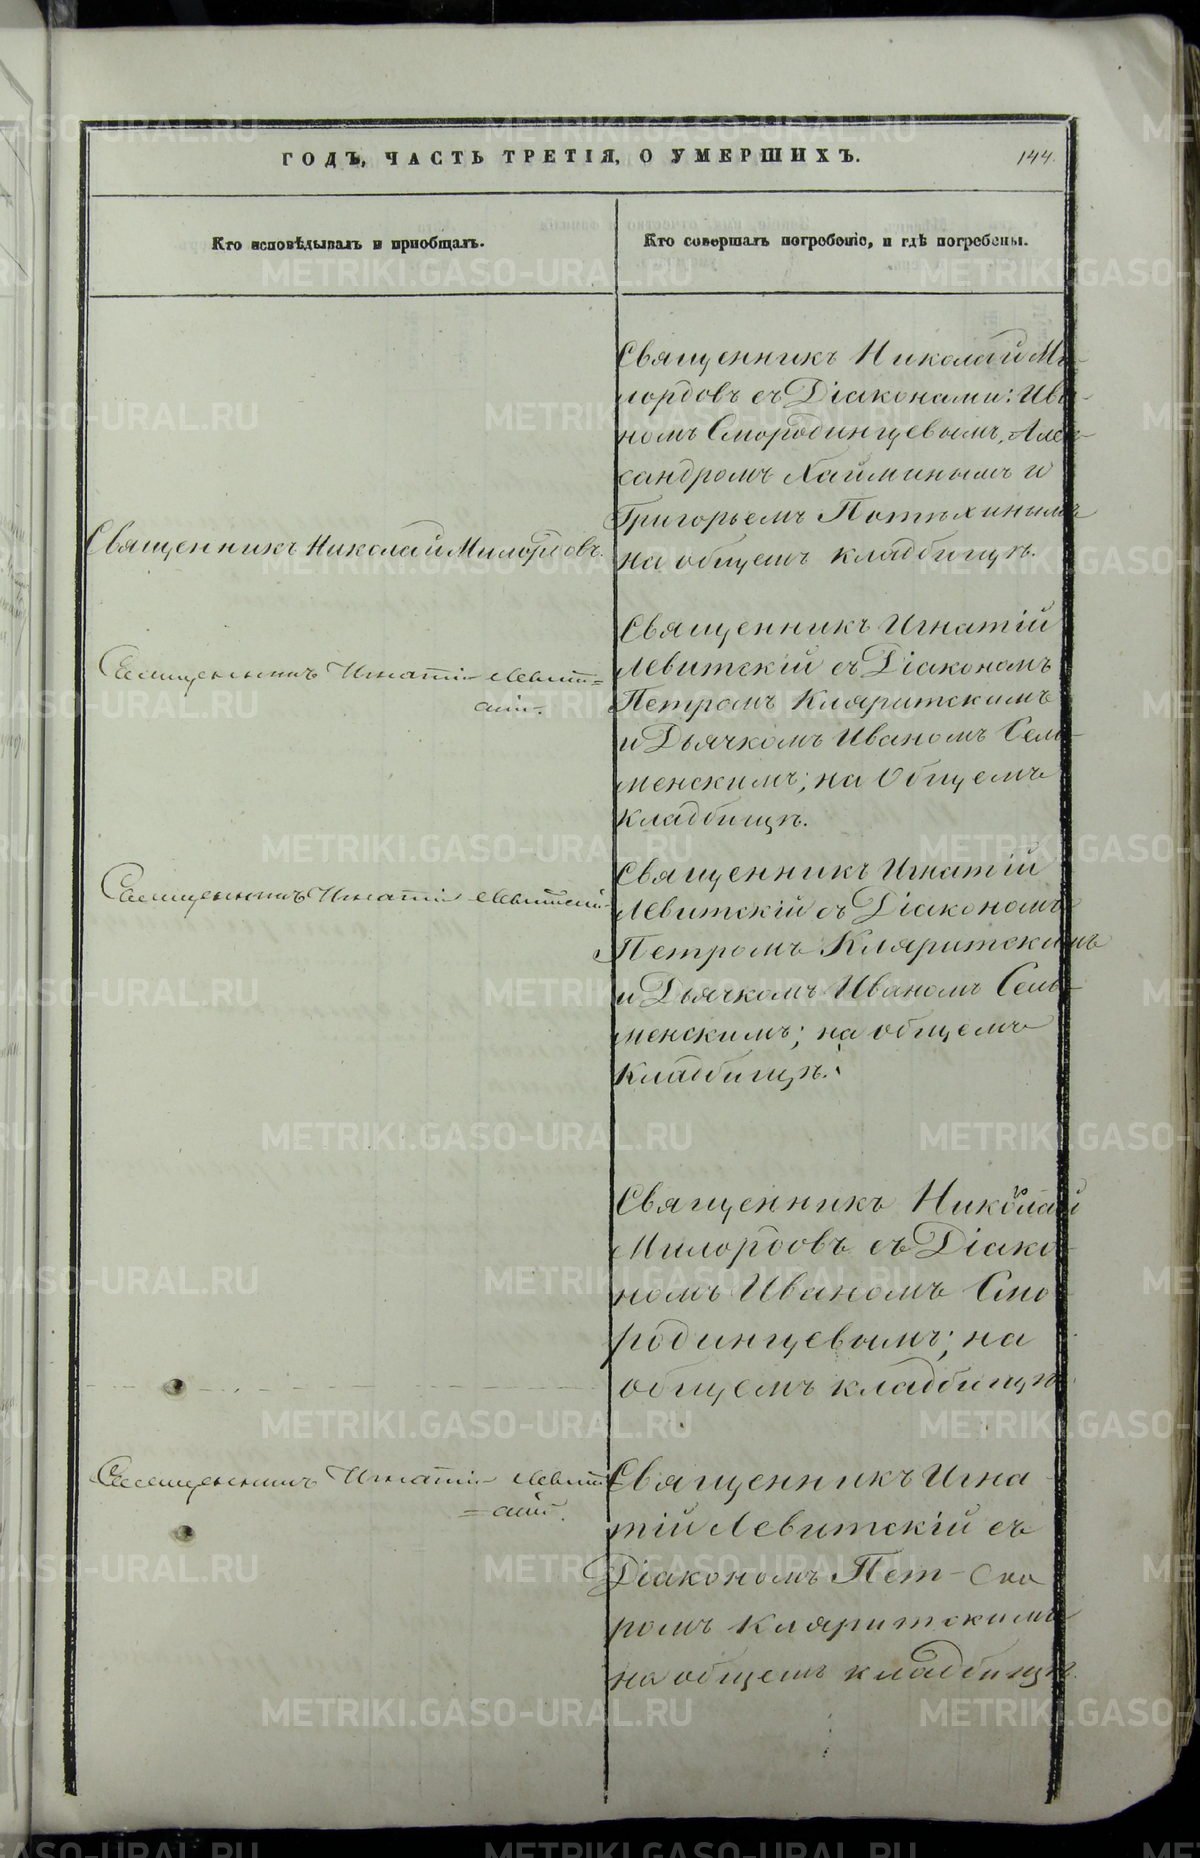 ГОДЪ, ЧАСТЬ ТРЕТІЯ, О УМЕРШИХЪ.
144.
Кто исповѣдывалъ и пріобщалъ.
Кто совершалъ погребеніе, и гдѣ погребены.
Священникъ Николай Ми-
лордовъ съ Діаконами: Ива-
номъ Смородинцевымъ, Алек-
сандромъ Хайминымъ и
Григорьемъ Потѣхинымъ
на общемъ кладбищѣ.
Священникъ Николай Милордовъ.
Священникъ Игнатій
Левитскій съ Діакономъ
Петромъ Кляритскимъ
и Дьячкомъ Иваномъ Семе-
менскимъ; на Общемъ
кладбищѣ.
Священникъ Игнатій Левит=
скій.
Священникъ Игнатій
Левитскій съ Діакономъ
Петромъ Кляритскимъ
и Дьячкомъ Иваномъ Семе-
менскимъ; на общемъ
кладбищѣ.
Священникъ Игнатій Левитскій
Священникъ Николай
Милордовъ съ Діако-
номъ Иваномъ Смо-
родинцевымъ; на
общемъ кладбищѣ
Священникъ Игнатій Левит
=скій.
Священникъ Игна-
тій Левитскій съ
Діакономъ Пет-
ромъ Кляритскимъ
на общемъ кладбищѣ.
METRIKI.GASO-URAL.RU